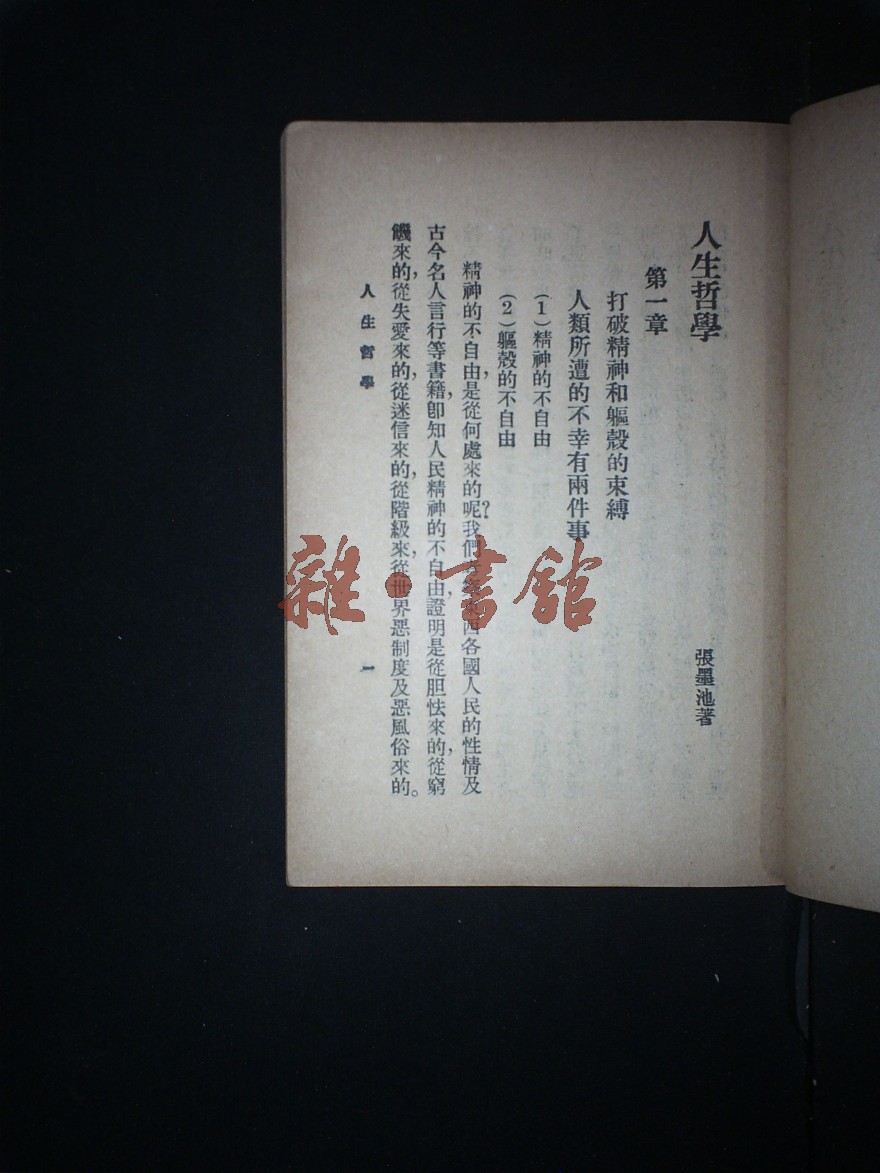 人生哲學
張墨池著
第一章
打破精神和軀殼的束縛
人類所遭的不幸有兩件事
(1)精神的不自由
(2)軀殼的不自由
精神的不自由,是從何處來的呢?我們西各國人民的性情及
古今名人言行等書籍,卽知人民精神的不自由,證明是從胆怯來的,從窮
饑來的,從失愛來的,從迷信來的,從階級來,從世界惡制度及惡風俗來的。
人生哲學
一
雜·書館